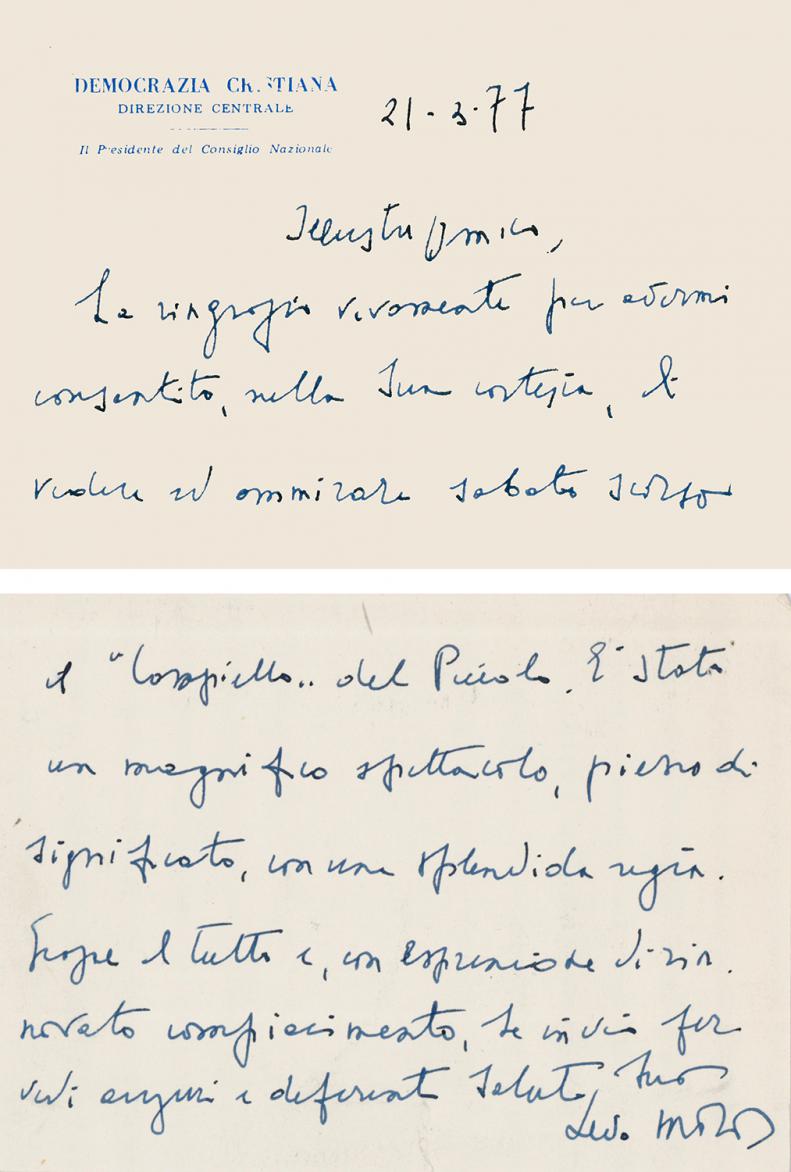 DEMOCRAZIA CRISTIANA
DIREZIONE CENTRALE
Il Presidente del Consiglio Nazionale
21-3-77
Illustre Amico,
La ringrazio vivamente per avermi
consentito, nella Sua cortesia, di
vedere ed ammirare sabato scorso
il "Campiello" del Piccolo. E' stato
un magnifico spettacolo, pieno di
significato, con una splendida regia.
Grazie di tutto e, con espressione di rin
novato compiacimento, Le invio fer
vidi auguri e deferenti saluti, Suo
Moro